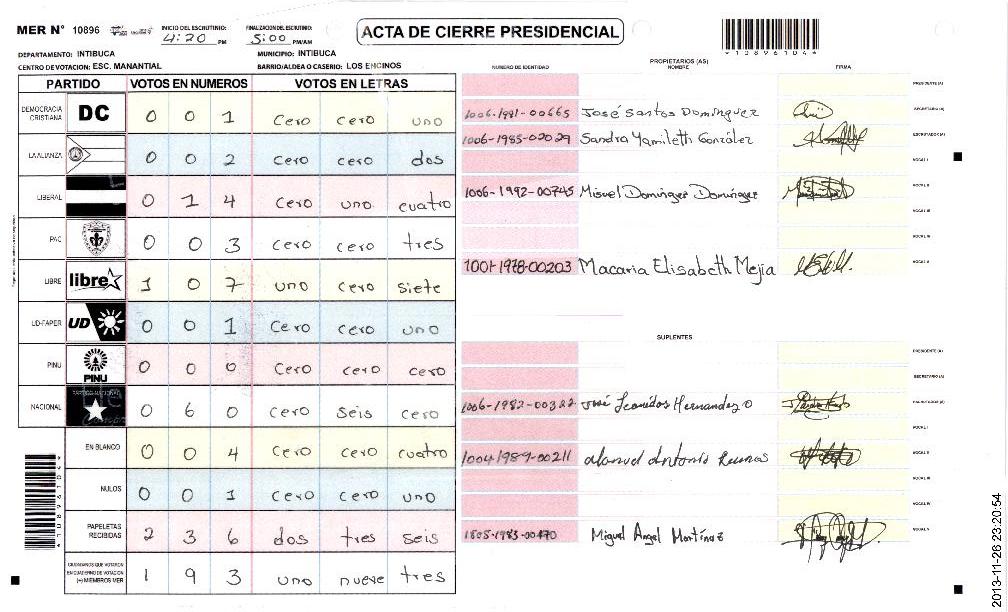 MER N° 10896 INICIO DEL ESCRUTINIO: 4:20 PM FINALIZACION DEL ESCRUTINIO: 5:00 PM/AM
ACTA DE CIERRE PRESIDENCIAL
*10896104*
DEPARTAMENTO: INTIBUCA MUNICIPIO: INTIBUCA
CENTRO DE VOTACION: ESC. MANANTIAL BARRIO/ALDEA O CASERIO: LOS ENCINOS
PARTIDO VOTOS EN NUMEROS VOTOS EN LETRAS
DEMOCRACIA CRISTIANA DC 0 0 1 cero cero uno
LA ALIANZA 0 0 2 cero cero dos
LIBERAL 0 1 4 cero uno cuatro
PAC 0 0 3 cero cero tres
LIBRE libre 1 0 7 uno cero siete
UD-FAPER UD 0 0 1 cero cero uno
PINU PINU 0 0 0 cero cero cero
NACIONAL 0 6 0 cero seis cero
EN BLANCO 0 0 4 cero cero cuatro
NULOS 0 0 1 cero cero uno
PAPELETAS RECIBIDAS 2 3 6 dos tres seis
CIUDADANOS QUE VOTARON EN CUADERNO DE VOTACION (+) MIEMBROS MER 1 9 3 uno nueve tres
PROPIETARIOS (AS)
NUMERO DE IDENTIDAD NOMBRE FIRMA
PRESIDENTE (A)
1006-1991-00665 José Santos Domínguez SECRETARIO (A)
1006-1985-02029 Sandra Yamileth González ESCRUTADOR (A)
VOCAL I
1006-1992-00745 Miguel Domínguez Domínguez VOCAL II
VOCAL III
VOCAL IV
1001-1978-00203 Macaria Elisabeth Mejía VOCAL V
SUPLENTES
PRESIDENTE (A)
SECRETARIO (A)
1006-1982-00322 José Leonidas Hernandez O ESCRUTADOR (A)
VOCAL I
1004-1989-00211 Manuel Antonio VOCAL II
VOCAL III
VOCAL IV
1805-1983-00470 Miguel Angel Martínez VOCAL V
2013-11-26 23:20:54